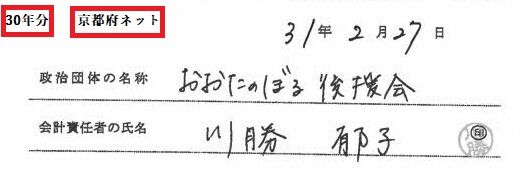 30年分 京都府ネット
31年2月27日
政治団体の名称 おおたのぼる後援会
会計責任者の氏名 川勝 郁子 印